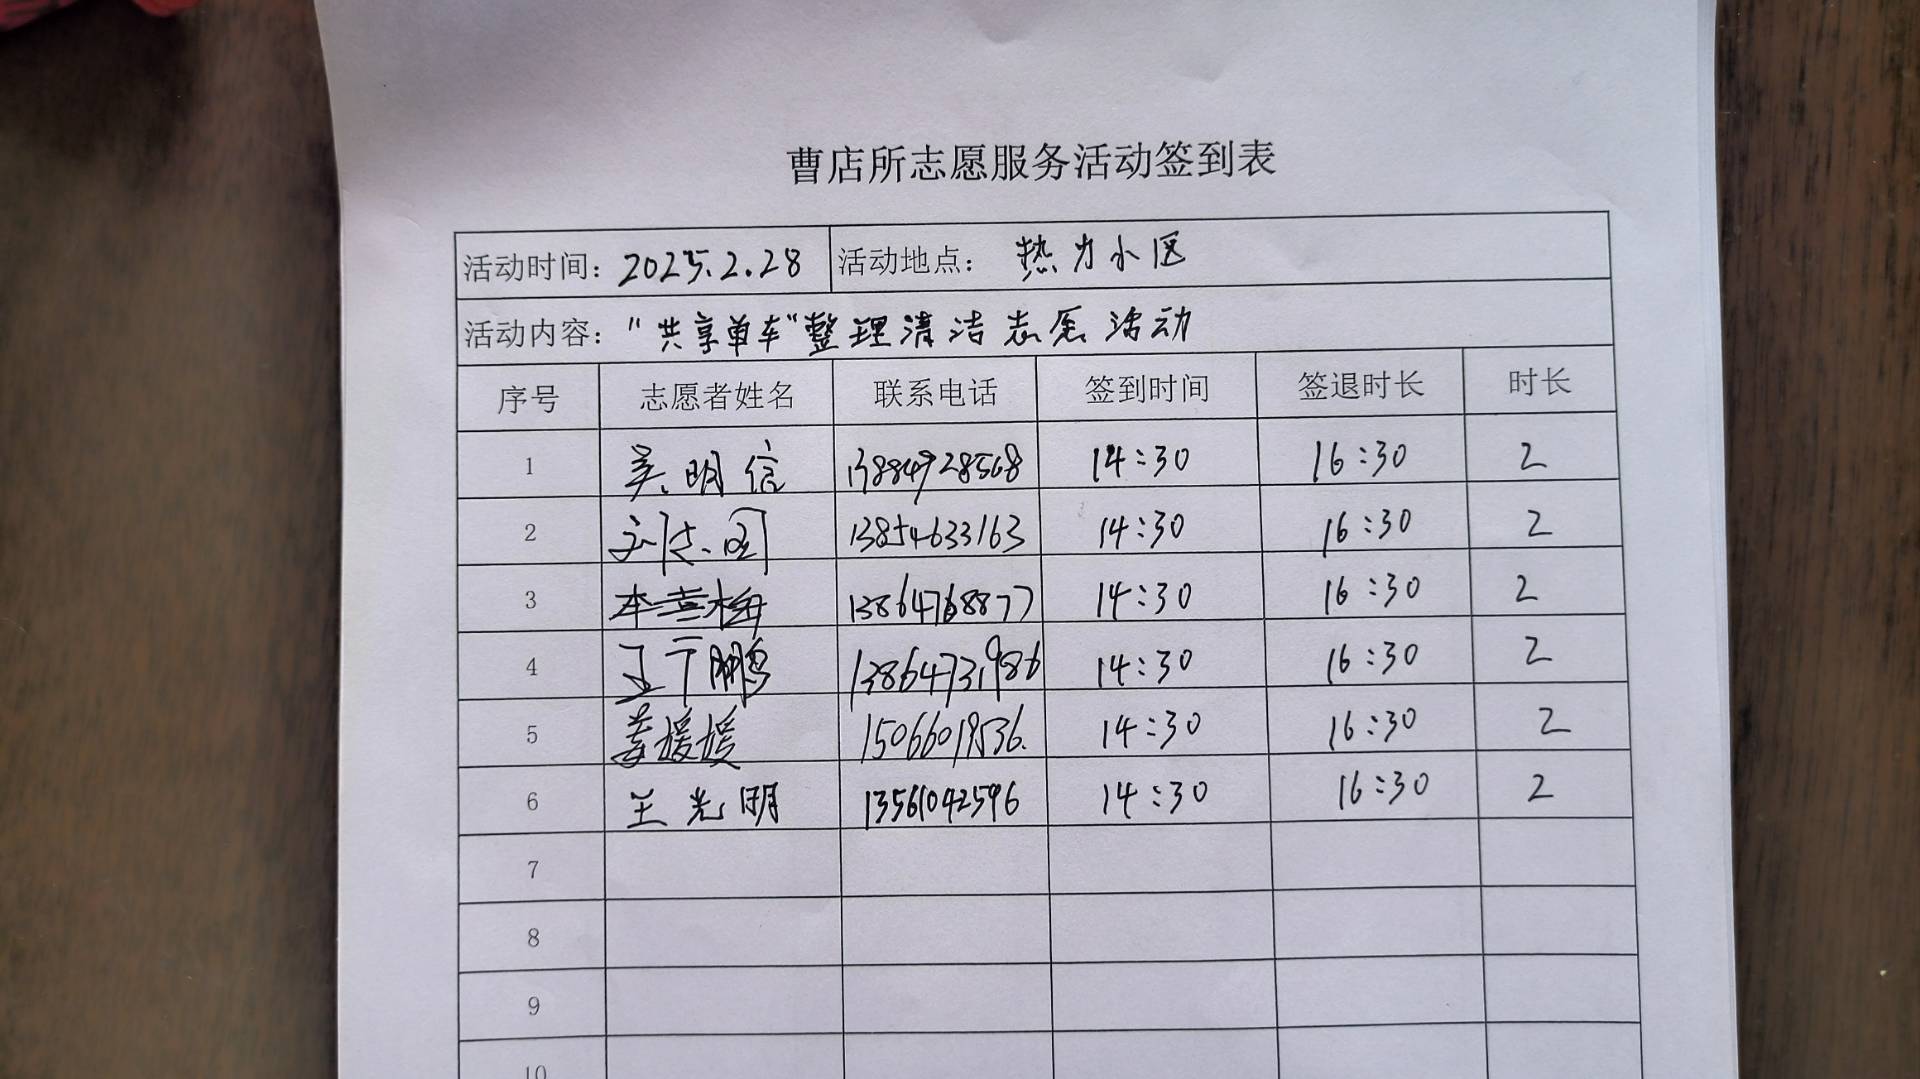 曹店所志愿服务活动签到表
活动时间：2025.2.28 活动地点： 热力小区
活动内容："共享单车"整理清洁志愿活动
序号 志愿者姓名 联系电话 签到时间 签退时长 时长
1 吴明信 13884928568 14:30 16:30 2
2 刘志国 13854633163 14:30 16:30 2
3 13864768877 14:30 16:30 2
4 王宁鹏 13864731986 14:30 16:30 2
5 姜媛媛 15066019536. 14:30 16:30 2
6 王光明 13561042596 14:30 16:30 2
7
8
9
10